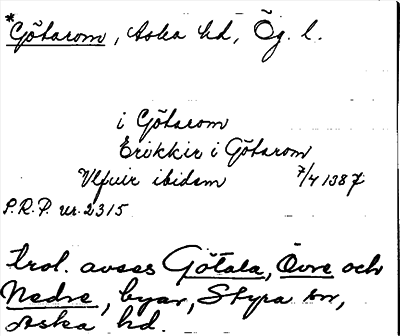 *Götarom, Aska hd, Ög. l.
i Götarom
Erikkir i Götarom
Vlfuir ibidem 7/4 1387
P.R.P. nr. 2315
trol. avses Götala, Övre och
Nedre, byar, Styra sn,
Aska hd.